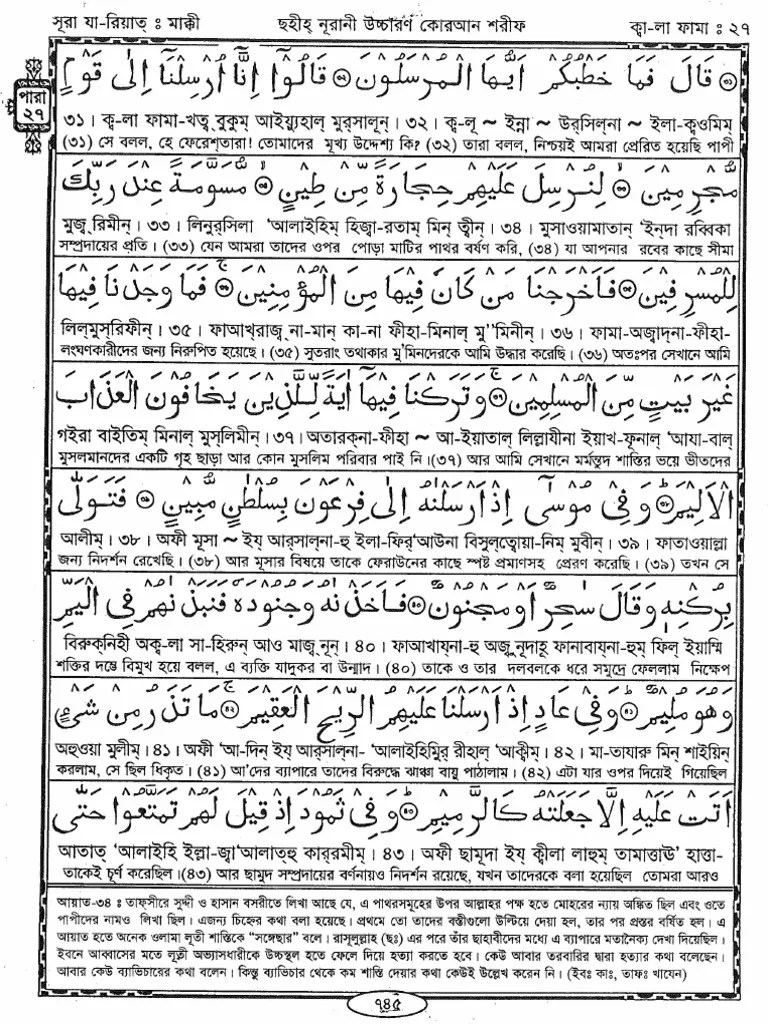 সূরা যা-রিয়াত্ : মাক্কী ছহীহ্ নূরানী উচ্চারণ কোরআন শরীফ ক্বা-লা ফামা : ২৭
পারা
২৭
قَالَ فَمَا خَطْبُكُمْ أَيُّهَا الْمُرْسَلُونَ ۝ قَالُوا إِنَّا أُرْسِلْنَا إِلَى قَوْمٍ
৩১। ক্বা-লা ফামা-খত্ব্ বুকুম্ আইয়্যুহাল্ মুর্সালূন্। ৩২। ক্ব-লূ ~ ইন্না ~ উর্সিল্না ~ ইলা-ক্বওমিম্
(৩১) সে বলল, হে ফেরেশ্তারা! তোমাদের মূখ্য উদ্দেশ্য কি? (৩২) তারা বলল, নিশ্চয়ই আমরা প্রেরিত হয়েছি পাপী
مُّجْرِمِينَ ۝ لِنُرْسِلَ عَلَيْهِمْ حِجَارَةً مِّنْ طِينٍ ۝ مُسَوَّمَةً عِنْدَ رَبِّكَ
মুজ্ রিমীন্। ৩৩। লিনুর্সিলা ‘আলাইহিম্ হিজ্বা-রতাম্ মিন্ ত্বীন্। ৩৪। মুসাওয়ামাতান্ ‘ইন্দা রব্বিকা
সম্প্রদায়ের প্রতি। (৩৩) যেন আমরা তাদের ওপর পোড়া মাটির পাথর বর্ষণ করি, (৩৪) যা আপনার রবের কাছে সীমা
لِلْمُسْرِفِينَ ۝ فَأَخْرَجْنَا مَنْ كَانَ فِيهَا مِنَ الْمُؤْمِنِينَ ۝ فَمَا وَجَدْنَا فِيهَا
লিল্মুস্রিফীন্। ৩৫। ফাআখ্রাজ্ব্ না-মান্ কা-না ফীহা-মিনাল্ মু’’মিনীন্। ৩৬। ফামা-অজ্বাদ্না-ফীহা-
লংঘণকারীদের জন্য নিরুপিত হয়েছে। (৩৫) সুতরাং তথাকার মু’মিনদেরকে আমি উদ্ধার করেছি। (৩৬) অতঃপর সেখানে আমি
غَيْرَ بَيْتٍ مِّنَ الْمُسْلِمِينَ ۝ وَتَرَكْنَا فِيهَا آيَةً لِّلَّذِينَ يَخَافُونَ الْعَذَابَ
গইরা বাইতিম্ মিনাল্ মুস্লিমীন্। ৩৭। অতারক্না-ফীহা ~ আ-ইয়াতাল্ লিল্লাযীনা ইয়াখ-ফূনাল্ ‘আযা-বাল্
মুসলমানদের একটি গৃহ ছাড়া আর কোন মুসলিম পরিবার পাই নি।(৩৭) আর আমি সেখানে মর্মন্তুদ শাস্তির ভয়ে ভীতদের
الْأَلِيمَ ۝ وَفِي مُوسَى إِذْ أَرْسَلْنٰهُ إِلَى فِرْعَوْنَ بِسُلْطٰنٍ مُّبِينٍ ۝ فَتَوَلَّى
আলীম্। ৩৮। অফী মূসা ~ ইয্ আর্সাল্না-হু ইলা-ফির্‘আউনা বিসুল্ত্বোয়া-নিম্ মুবীন্। ৩৯। ফাতাওয়াল্লা
জন্য নিদর্শন রেখেছি। (৩৮) আর মূসার বিষয়ে তাকে ফেরাউনের কাছে স্পষ্ট প্রমাণসহ প্রেরণ করেছি। (৩৯) তখন সে
بِرُكْنِهِ وَقَالَ سٰحِرٌ أَوْ مَجْنُونٌ ۝ فَأَخَذْنٰهُ وَجُنُودَهُ فَنَبَذْنٰهُمْ فِي الْيَمِّ
বিরুক্নিহী অক্ব-লা সা-হিরুন্ আও মাজ্ব্ নূন্। ৪০। ফাআখায্না-হু অজ্বুনূদাহূ ফানাবায্না-হুম্ ফিল্ ইয়াম্মি
শক্তির দম্ভে বিমুখ হয়ে বলল, এ ব্যক্তি যাদুকর বা উন্মাদ। (৪০) তাকে ও তার দলবলকে ধরে সমুদ্রে ফেললাম নিক্ষেপ
وَهُوَ مُلِيمٌ ۝ وَفِي عَادٍ إِذْ أَرْسَلْنَا عَلَيْهِمُ الرِّيحَ الْعَقِيمَ ۝ مَا تَذَرُ مِنْ شَيْءٍ
অহুওয়া মুলীম্। ৪১। অফী ‘আ-দিন্ ইয্ আর্সাল্না- ‘আলাইহিমুর্ রীহাল্ ‘আক্বীম্। ৪২। মা-তাযারু মিন্ শাইয়িন্
করলাম, সে ছিল ধিকৃত। (৪১) আ’দের ব্যাপারে তাদের বিরুদ্ধে ঝাঞ্ঝা বায়ু পাঠালাম। (৪২) এটা যার ওপর দিয়েই গিয়েছিল
أَتَتْ عَلَيْهِ إِلَّا جَعَلَتْهُ كَالرَّمِيمِ ۝ وَفِي ثَمُودَ إِذْ قِيلَ لَهُمْ تَمَتَّعُوا حَتّٰى
আতাত্ ‘আলাইহি ইল্লা-জ্বা‘আলাত্হু কার্রমীম্। ৪৩। অফী ছামূদা ইয্ ক্বীলা লাহুম্ তামাত্তাঊ’ হাত্তা-
তাকেই চূর্ণ করেছিল।(৪৩) আর ছামুদ সম্প্রদায়ের বর্ণনায়ও নিদর্শন রয়েছে, যখন তাদেরকে বলা হয়েছিল তোমরা আরও
আয়াত-৩৪ : তাফ্সীরে সুদ্দী ও হাসান বসরীতে লিখা আছে যে, এ পাথরসমূহের উপর আল্লাহর পক্ষ হতে মোহরের ন্যায় অঙ্কিত ছিল এবং ওতে
পাপীদের নামও লিখা ছিল। এজন্য চিহ্নের কথা বলা হয়েছে। প্রথমে তো তাদের বস্তীগুলো উল্টিয়ে দেয়া হল, তার পর প্রস্তর বর্ষিত হল। এ
আয়াত হতে অনেক ওলামা লূতী শাস্তিকে “সঙ্গেছার” বলে। রাসূলুল্লাহ (ছঃ) এর পরে তাঁর ছাহাবীদের মধ্যে এ ব্যাপারে মতানৈক্য দেখা দিয়েছিল।
ইবনে আব্বাসের মতে লূতী অভ্যাসধারীকে উচ্চস্থল হতে ফেলে দিয়ে হত্যা করতে হবে। কেউ আবার তরবারির দ্বারা হত্যার কথা বলেছেন।
আবার কেউ ব্যাভিচারের কথা বলেন। কিন্তু ব্যাভিচার থেকে কম শাস্তি দেয়ার কথা কেউই উল্লেখ করেন নি। (ইবঃ কাঃ, তাফঃ খাযেন)
৭৪৫